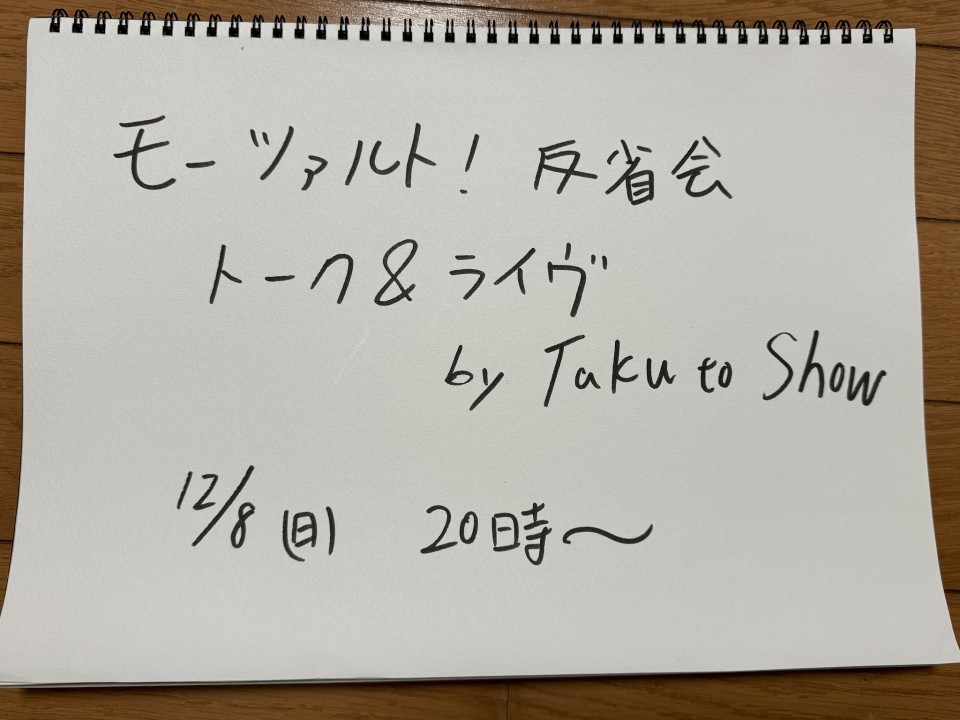 モーツァルト! 反省会
トーク&ライヴ
by Taku to Show
12/8(日) 20時〜